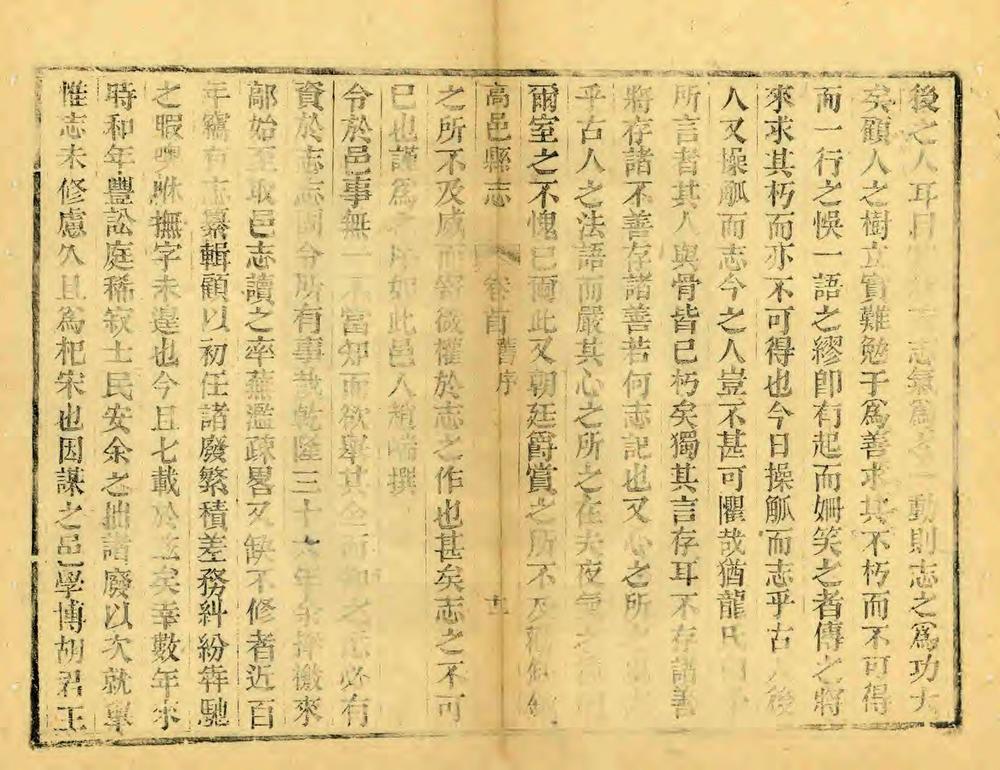 後之人耳曰志氣爲動則志之爲功大
矣顧人之樹立實難勉于爲善求其不朽而不可得
而一行之悞一語之繆卽有起而姍笑之者傳之將
來求其朽而亦不可得也今日操觚而志乎古後
人又操觚而志今之人豈不甚可懼哉猶龍氏
所言者其人與骨皆已朽矣獨其言存耳不存諸善
將存諸不善存諸善若何志記也又心之所
乎古人之法語而嚴其心之所之在夫夜氣之
爾室之不愧已爾此又朝廷爵賞之所不及
高邑縣志 卷首 舊序
之所不及威而寄微權於志之作也甚矣志之不可
已也謹爲之如此邑人趙喘撰
令於邑事無一不當知而欲舉其而知之必有
資於志志固令所有事哉乾隆三十六年余檄來
鄗始至取邑志讀之率蕪濫疎畧又缺不修者近百
年竊有志纂輯顧以初任諸廢繁積差務糾紛犇馳
之暇呴咻撫字未遑也今且七載於兹矣幸數年來
時和年豐訟庭稀寂士民安余之拙諸廢以次就舉
惟志未修慮久且爲杞宋也因謀之邑學博胡君王